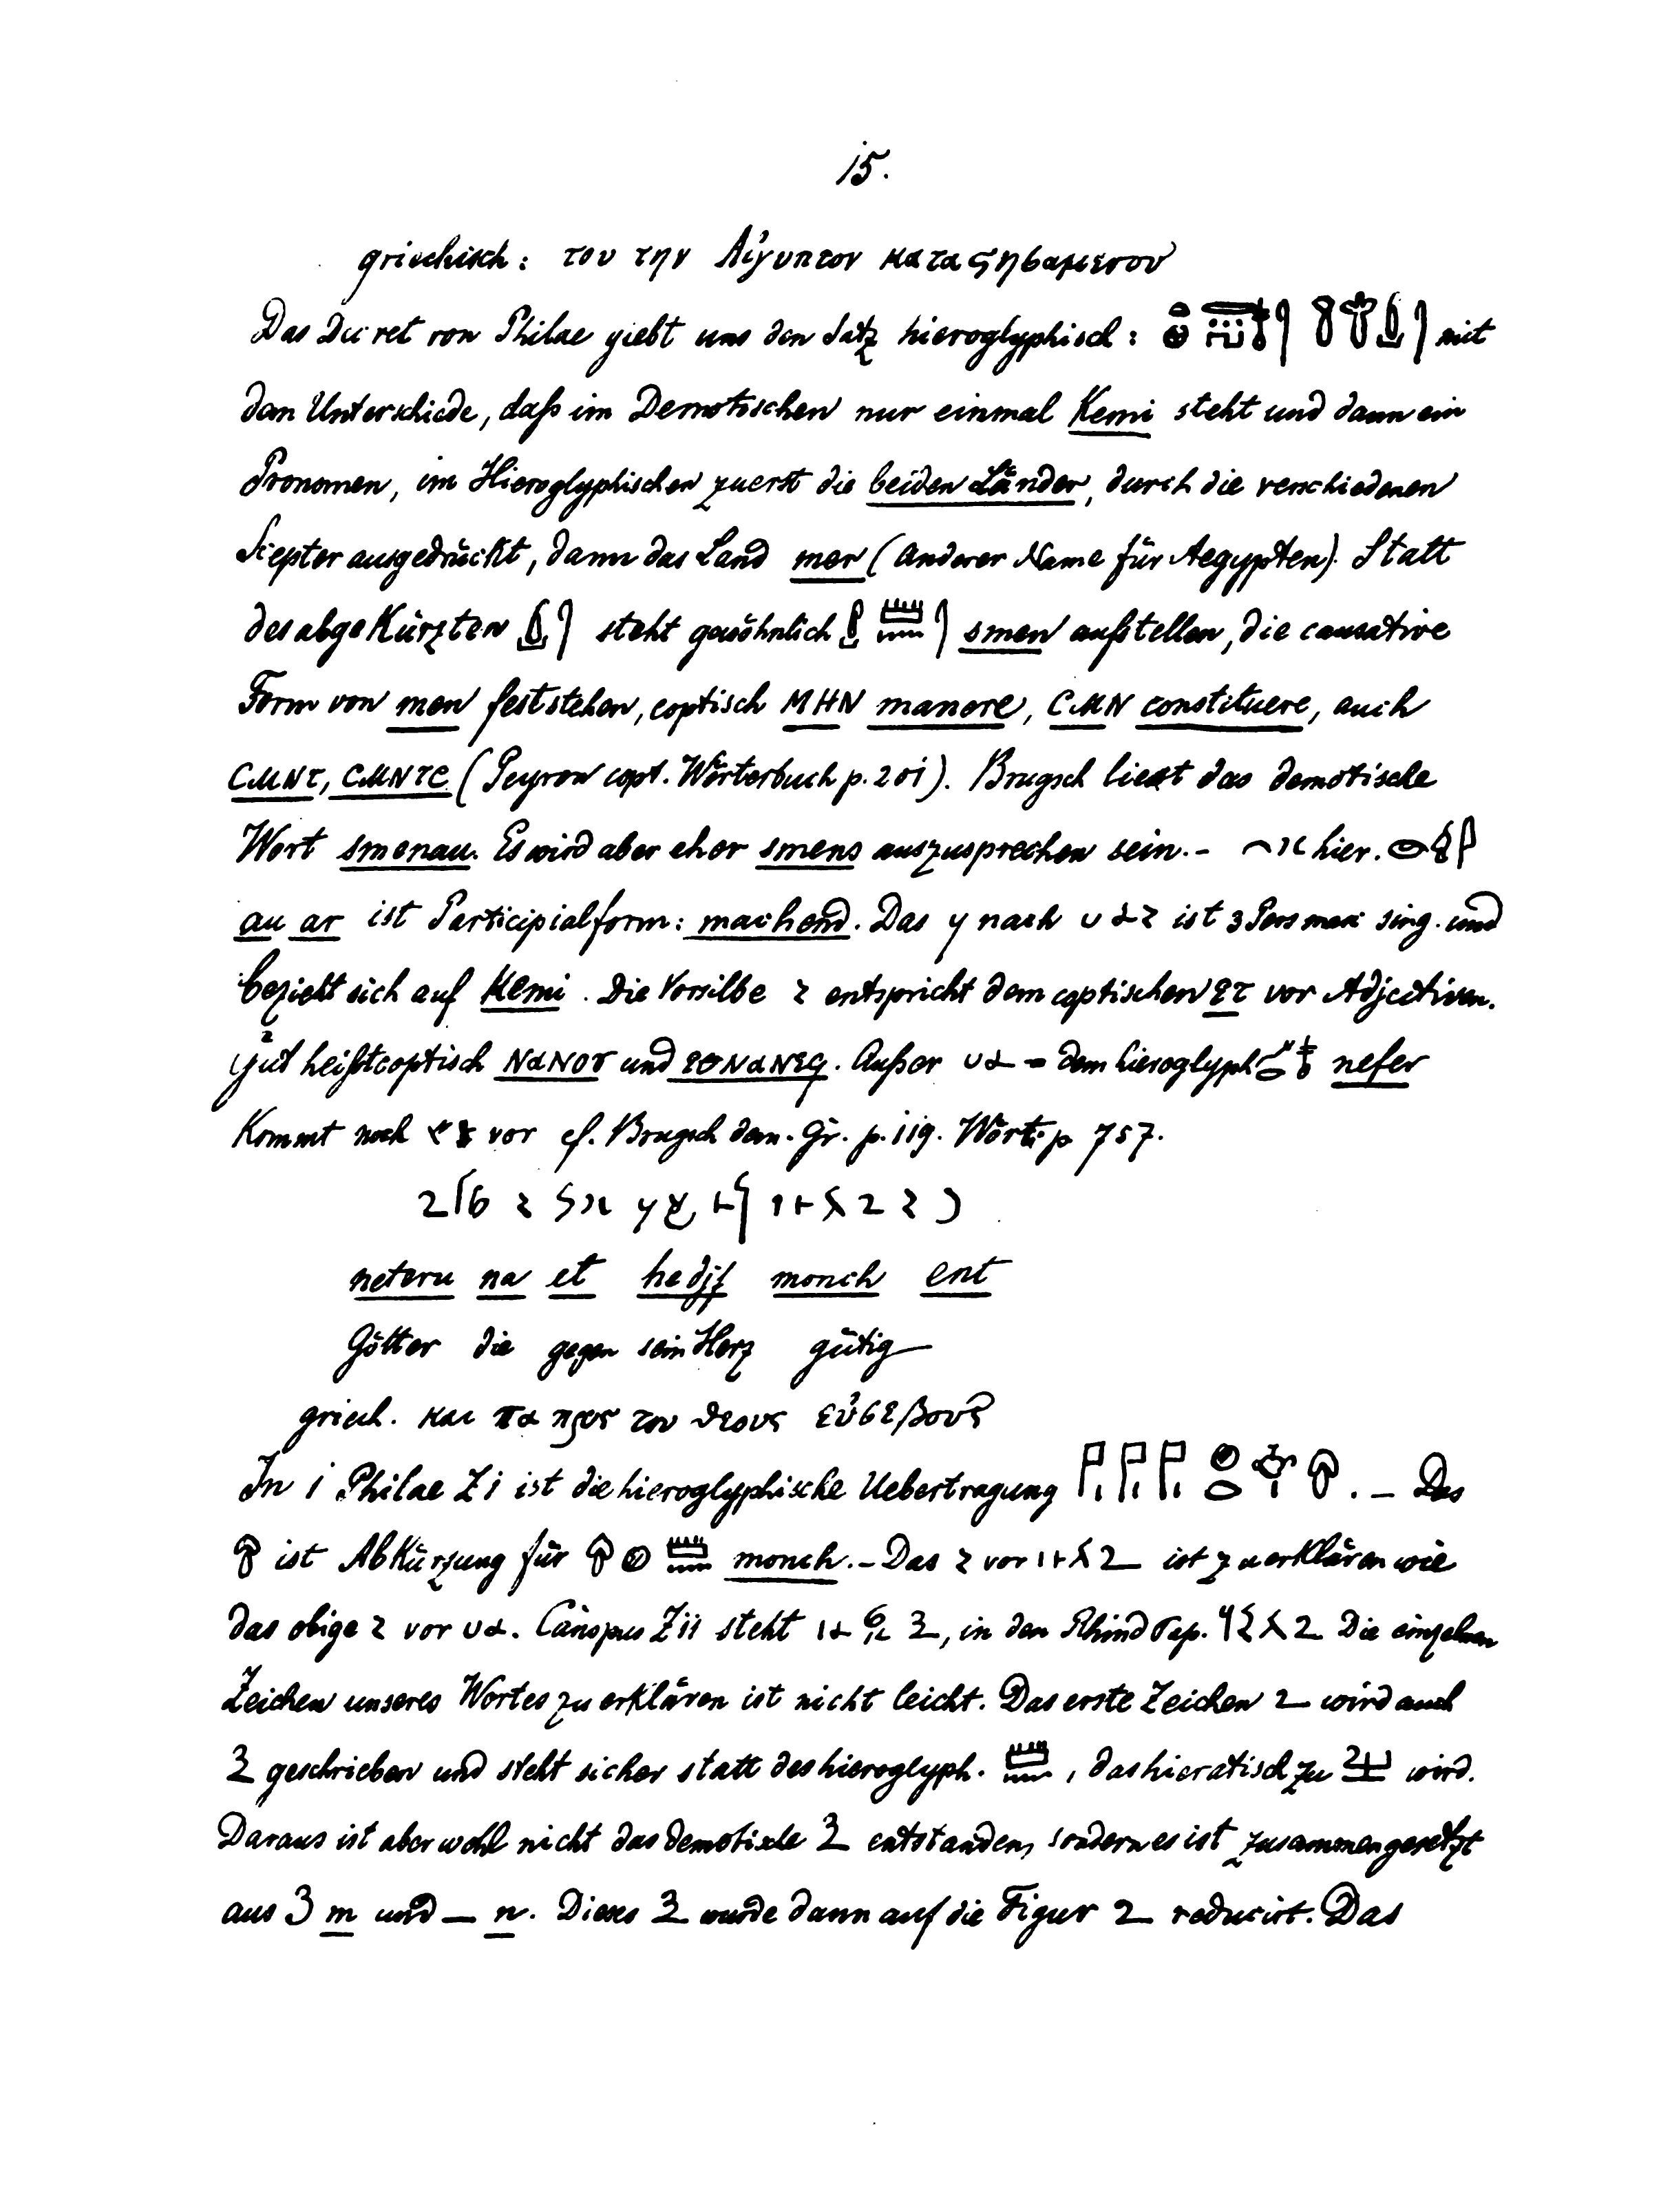 15.
griechisch: του την Αἰγυπτον καταςησαμενου
Das Decret von Philae giebt uns den Satz hieroglyphisch: mit
dem Unterschiede, daß im Demotischen nur einmal Kemi steht und dann ein
Pronomen, im Hieroglyphischen zuerst die beiden Länder, durch die verschiedenen
Scepter ausgedrückt, dann das Land mer (anderer Name für Aegypten). Statt
des abgekürzten steht gewöhnlich smen aufstellen, die causative
Form von men feststehen, coptisch ⲙⲏⲛ manere, ⲥⲙⲛ constituere, auch
ⲥⲙⲛⲧ, ⲥⲙⲛⲧⲥ (Peyron copt. Wörterbuch p. 201). Brugsch liest das demotische
Wort smenau. Es wird aber eher smens auszusprechen sein. - hier.
au ar ist Participialform: machend. Das y nach ist 3 Pers masc sing. und
bezieht sich auf Kemi. Die Vorsilbe 2 entspricht dem coptischen ⲉⲧ vor Adjectiven.
gut heißt coptisch ⲛⲁⲛⲟⲩ und ⲉⲑⲛⲁⲛⲉϥ. Außer = dem hieroglyph. nefer
kommt noch vor cf. Brugsch dem. Gr. p. 119. Wört. p 757.
neteru na et hedjf monch ent
Götter die gegen sein Herz gütig
griech. και τα προς του θεους εὐσεβους
In 1 Philae Z 1 ist die hieroglyphische Uebertragung . — Das
ist Abkürzung für monch. - Das 2 vor ist zu erklären wie
das obige 2 vor . Canopus Z 11 steht , in den Rhind Pap. Die einzelnen
Zeichen unseres Wortes zu erklären ist nicht leicht. Das erste Zeichen 2 wird auch
3 geschrieben und steht sicher statt des hieroglyph. , das hieratisch zu wird.
Daraus ist aber wohl nicht das demotische 3 entstanden, sondern es ist zusammengesetzt
aus 3 m und — n. Dieses 3 wurde dann auf die Figur 2 reducirt. Das